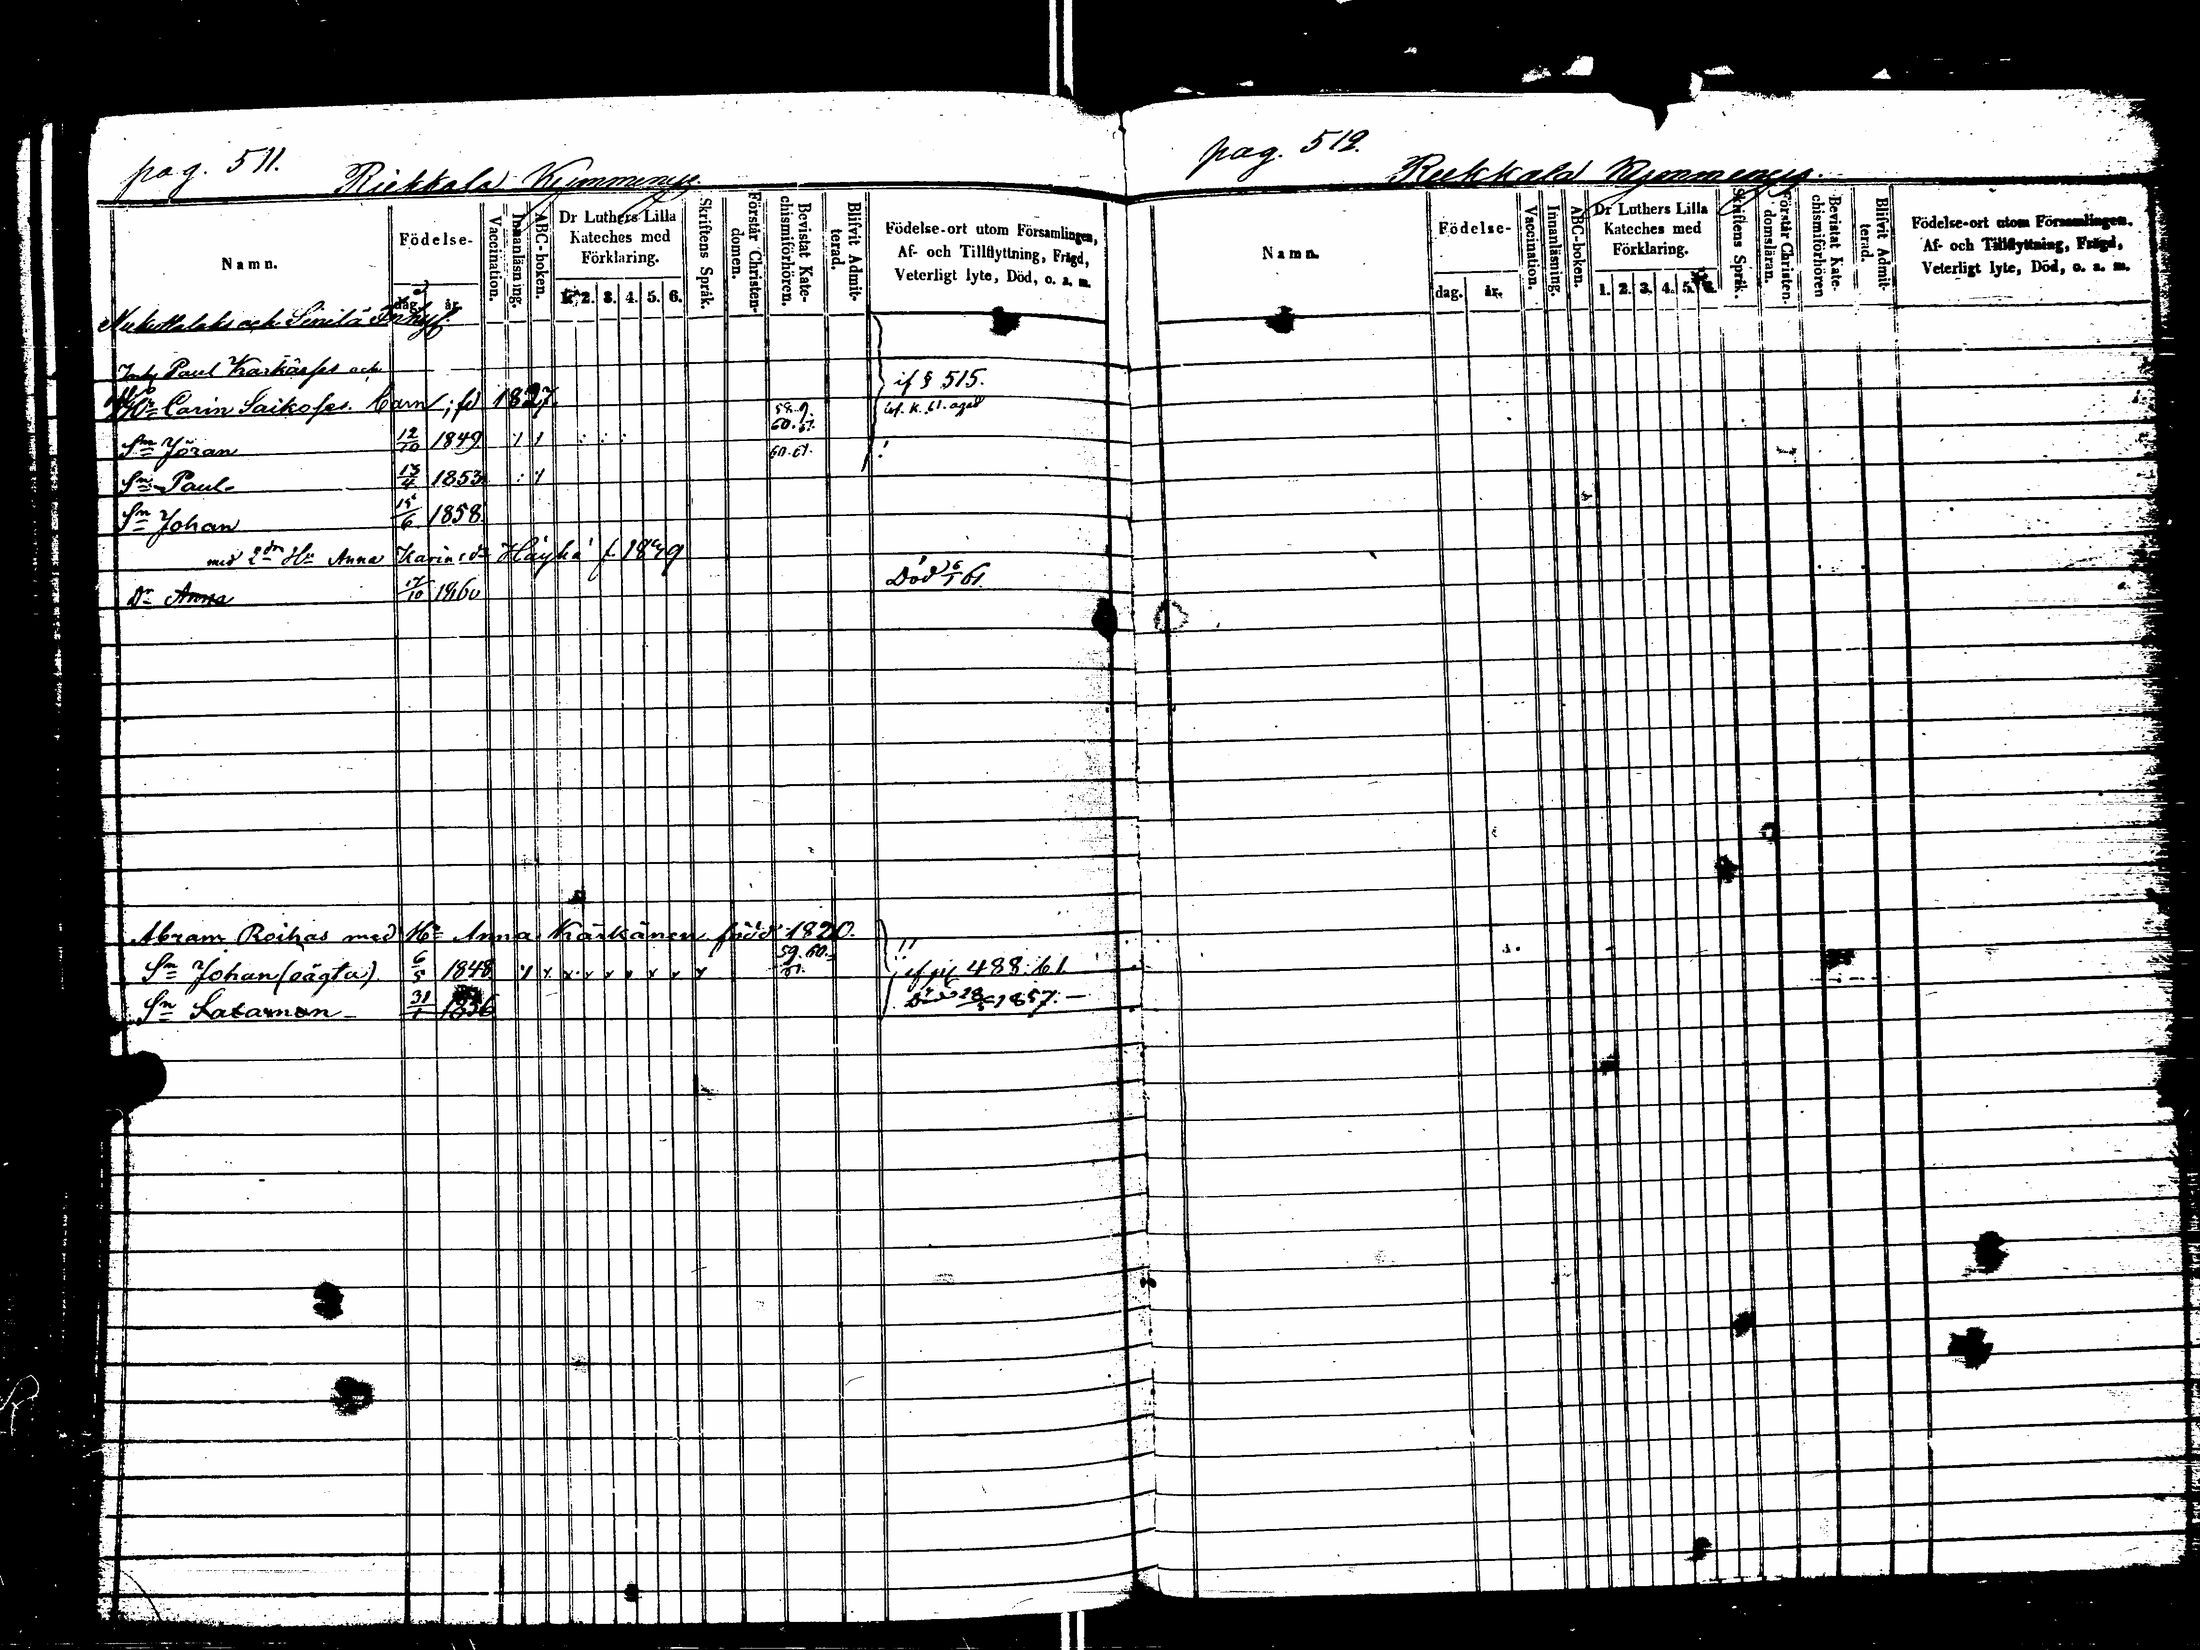 pag. 511.
Riekkala Kymmenys.
Namn.
Födelse-
dag.
år.
Vaccination.
Innanläsning.
ABC-boken.
Dr Luthers Lilla
Kateches med
Förklaring.
1. 2. 3. 4. 5. 6.
Skriftens Språk.
Förstår Christen-
domen.
Bevistat Kate-
chismiförhören.
Blifvit Admit-
terad.
Födelse-ort utom Församlingen,
Af- och Tillflyttning, Frägd,
Veterligt lyte, Död, o. s. m.
och
Paul och
if § 515.
Hu Carin Saikoſes barn; fd 1827.
58.9.
60.61.
Sn Jöran 12/10 1849
60.61.
Sn Paul 13/4 1853
Sn Johan 15/6 1858
med 2dra Hu Anna Karin
Dr Anna 17/10 1860
Död 61.
Abram Roihas med Hu Anna Kärkänen född 1820.
59.60.
Sn Johan (oägta) 6/5 1848 61. 488. 61.
Sn Salamon 31/1 1856
1857.
pag. 512.
Riekkala Kymmenys.
Namn.
Födelse-
dag.
år.
Vaccination.
Innanläsning.
ABC-boken.
Dr Luthers Lilla
Kateches med
Förklaring.
1. 2. 3. 4. 5. 6.
Skriftens Språk.
Förstår Christen-
domsläran.
Bevistat Kate-
chismiförhören
Blifvit Admit-
terad.
Födelse-ort utom Församlingen.
Af- och Tillflyttning, Frägd,
Veterligt lyte, Död, o. s. m.